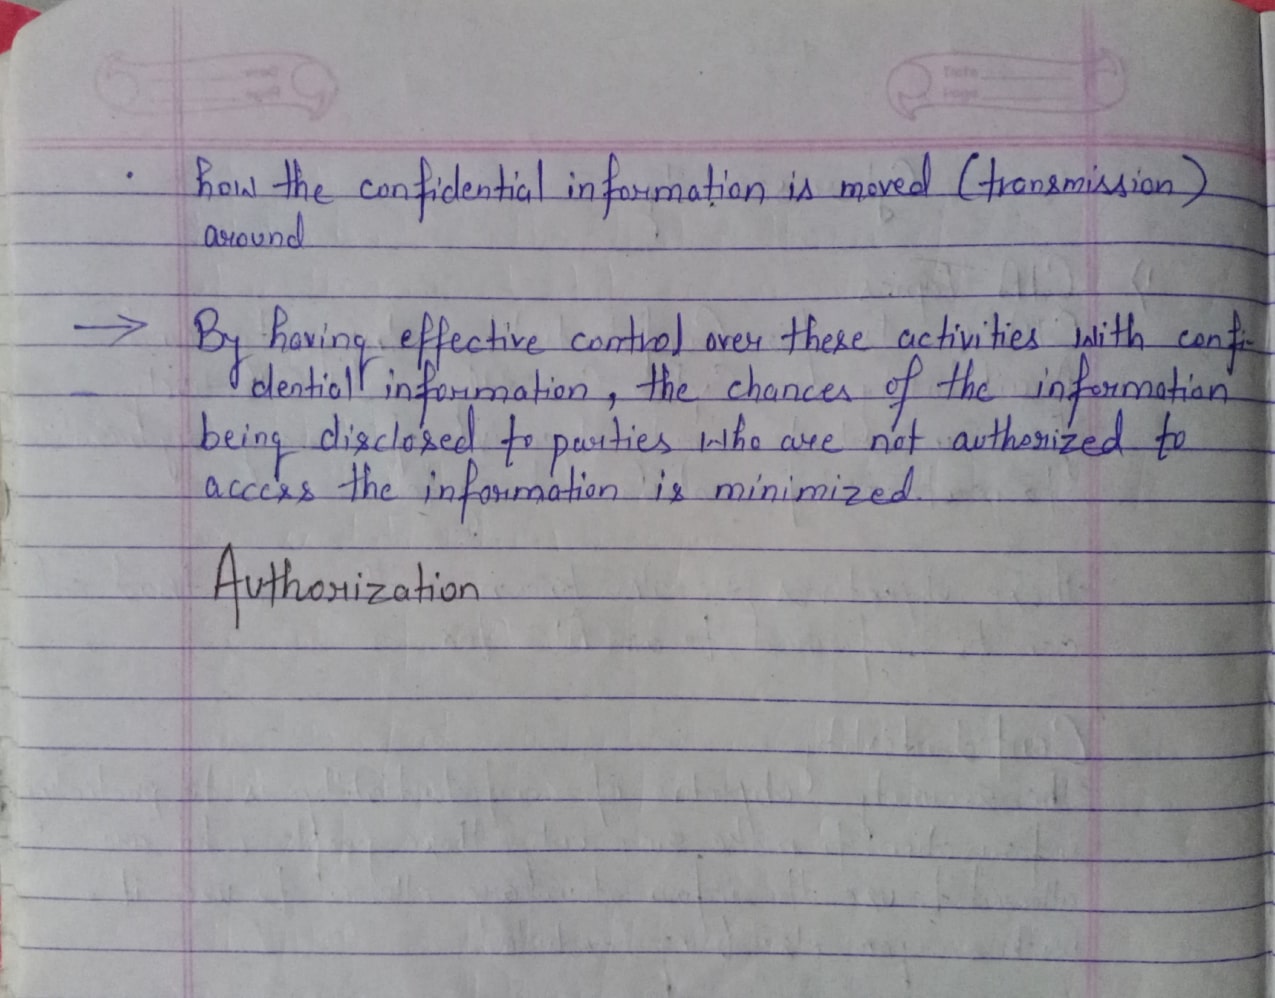 Date
Page
• how the confidential information is moved (transmission)
around
→ By having effective control over these activities with confi-
dential information, the chances of the information
being disclosed to parties who are not authorized to
access the information is minimized.
Authorization